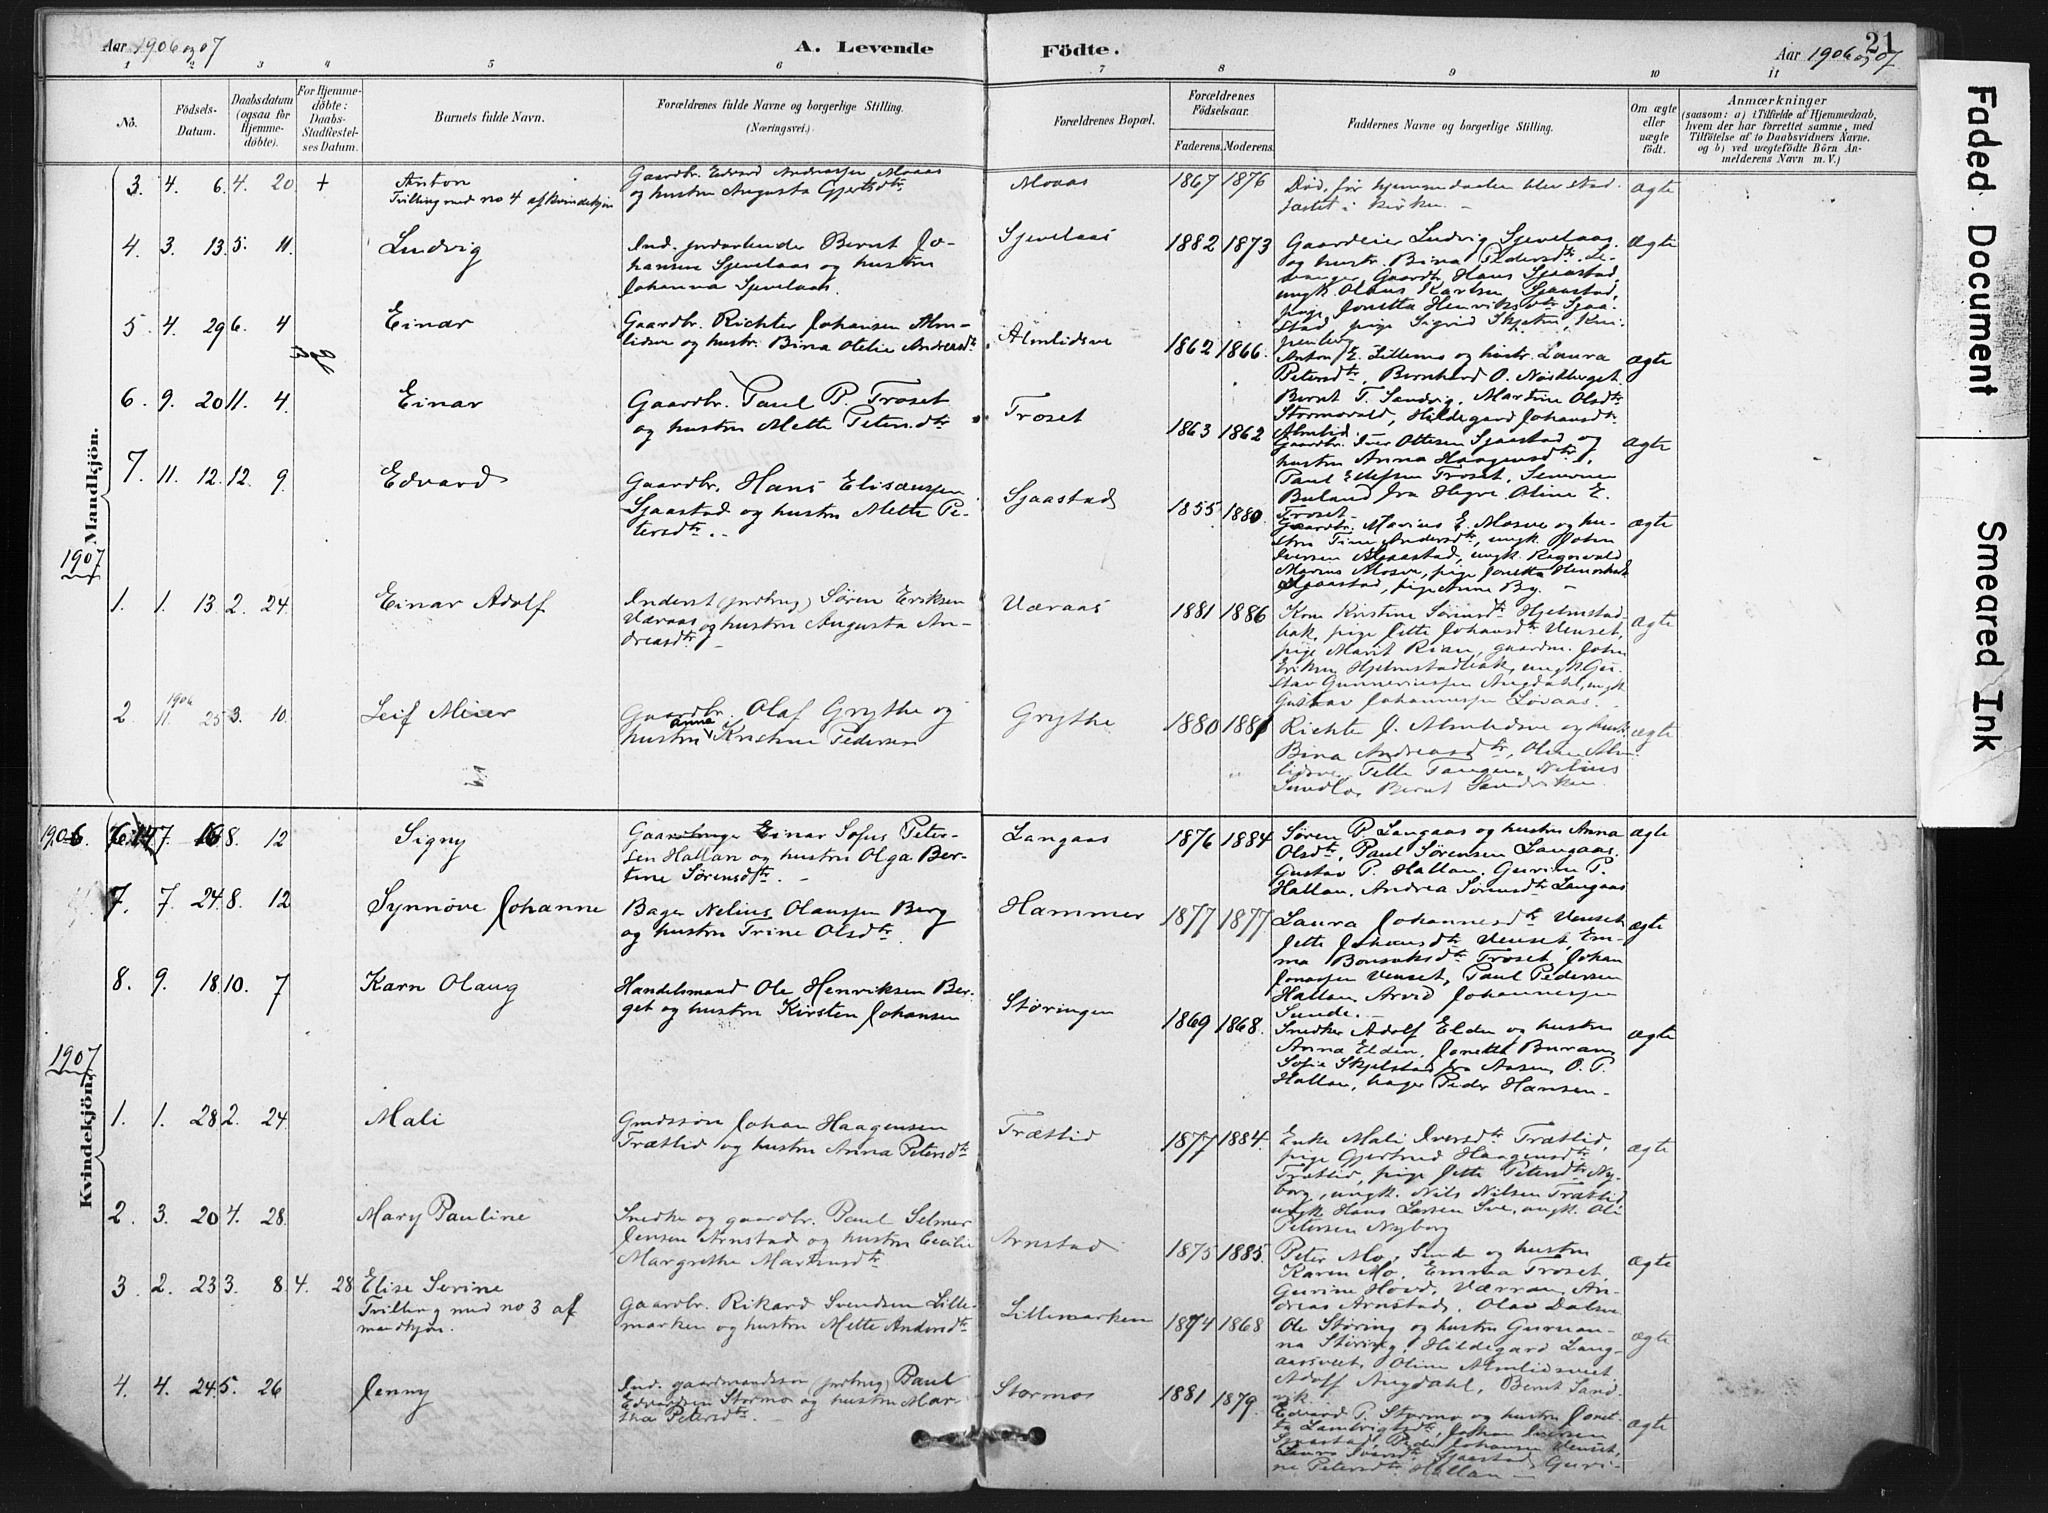 Aar 1906 og 07
A. Levende
Födte.
21
Aar 1906 og 07
1 2 3 4 5 6 7 8 9 10 11
No.
Födsels-
Datum.
Daabsdatum
(ogsaa for
Hjemme-
döbte).
For Hjemme-
döbte:
Daabs-
Stadfæstel-
ses Datum.
Barnets fulde Navn.
Forældrenes fulde Navne og borgerlige Stilling.
(Næringsvei.)
Forældrenes Bopæl.
Forældrenes
Födselsaar.
Faderens. Moderens.
Faddernes Navne og borgerlige Stilling.
Om ægte
eller
uægte
födt.
Anmærkninger
(saasom: a) i Tilfælde af Hjemmedaab,
hvem der har forrettet samme, med
Tilföielse af to Daabsvidners Navne.
og b) ved uægtefödte Börn An-
melderens Navn m. V.)
Faded Document
Smeared Ink
Mandkjön.
3. 4. 6. 4. 20 +
Anton
Tvilling med no 4 af kvindekjøn
Gaardbr. Edvard Andreassen Moaas
og hustru Augusta Gjertsdtr
Moaas
1867 1876
Död før hjemmedaaben blev stad-
fæstet i kirken. -
ægte
4. 3. 13 5. 11.
Ludvig
Ind. jordarbeider Bernt Jo-
hansen Sjevelaas og hustru
Johanna Sjevelaas.
Sjevelaas
1882 1873
Gaardeier Ludvig Sjevelaas
og hustr. Bina Pedersdtr. Le-
vanger, Gaardbr. Hans Sjaastad,
ungk. Olaus Karlsen Sjaastad,
pige Jonetta Henriksdtr Sjaa-
stad, pige Sigrid
ægte
5. 4. 29 6. 4
Einar
Gaardbr. Richter Johansen Alm-
lidsve og hustr. Bina Otelie Andreasdtr
Almlidsve
1862 1866.
Anton E. Lillemo og hustr. Laura
Petersdtr, Bernhard O. Nøisberget
Bernt T. Sandvig, Martine Olsdtr
Stormovald, Hildegard Johansdtr
Almlid.
ægte
6. 9. 20 11. 4.
Einar
Gaardbr. Paul P. Troset
og hustru Mette Petersdtr
Troset
1863 1862
Gaardbr. Iver Ottesen Sjaastad og
hustru Anna Haagensdtr,
Paul Ellefsen Troset,
Buland fra Hegre, Oline E.
Troset.
ægte
7. 11. 12. 12. 9.
Edvard
Gaardbr. Hans Elisæussen
Sjaastad og hustru Mette Pe-
tersdtr. -
Sjaastad
1855 1880.
Gaardbr. Marius E. Mosve og hu-
stru Tine Andersdtr, ungk. John
Iversen Sjaastad, ungk. Ragnvald
Marius Mosve, pige Jonetta Henriksd.
Sjaastad, pige Anne By. -
ægte
1907
1. 1. 13 2. 24.
Einar Adolf
Inderst (jordbrug) Søren Eriksen
Væraas og hustru Augusta An-
dreasdtr
Væraas
1881 1886
Kone Kristine Sørensdtr Hjelmstad-
bak, pige Jette Johansdtr Venset,
pige Marit Rian, gaardm. John
Eriksen Hjelmstadbak, ungk Gu-
stav Gunneriussen Angdahl, ungk
Gustav Johannessen Løvaas.
ægte
1906
2 11. 25 3. 10.
Leif Meier
Gaardbr. Olaf Grythe og
hustru Anna Kristine Pedersen
Grythe
1880 1881
Richter J. Almlidsve og hustr.
Bina Andreasdtr, Oline Alm-
lidsve, Jette Tangen, Nelius
Sundlo, Bernt Sandviken.
ægte
Kvindekjön.
1906. 6. 7. 16 8. 12
Signy
Gaardbruger Einar Sofus Peter-
sen Hallan og hustru Olga Ber-
tine Sørensdtr. -
Langaas
1876 1884
Søren P. Langaas og hustru Anna
Olsdtr, Paul Sørensen Langaas.
Gustav P. Hallan, Gurine P.
Hallan, Andrea Sørensdtr Langaas
ægte
7. 7. 24. 8. 12
Synnöve Johanne
Bager Nelius Olaussen Berg
og hustru Trine Olsdtr.
Hammer
1877 1877
Laura Johannesdtr Venset
Jette Johansdtr Venset, Em-
ma Bonsaksdtr Troset, Johan
Jonassen Venset, Paul Pedersen
Hallan, Arvid Johannessen
Sunde. -
ægte
8. 9. 18 10. 7
Karn Olaug
Handelsmand Ole Henriksen Ber-
get og hustru Kirsten Johansen
Støringen
1869 1868.
Snedker Adolf Elden og hustru
Anna Elden, Jonetta Buran,
Sofie Skjelstad fra Aasen, O. P.
Hallan, bager Peder Hansen -
ægte
1907
1. 1. 28 2. 24.
Mali
Gmdssøn Johan Haagensen
Trætlid og hustru Anna Petersdtr
Trætlid
1877 1884.
Enke Mali Iversdtr Trætlid,
pige Gjertrud Haagensdtr
Trætlid, pige Jette Petersdtr Ny-
borg, ungk. Nils Nilsen Trætlid
ungk Hans Larsen Sve, ungk. Ole
Petersen Nyborg
ægte
2. 3. 20 4. 28.
Mary Pauline
Snedker og gaardbr. Paul Selmer
Jensen Arnstad og hustru Cecilie
Margrethe Martinsdtr
Arnstad
1875 1885.
Peter Mo, Sunde og hustru
Karen Mo, Emma Troset,
Gurine Hovd, Værran, An-
dreas Arnstad, Olav Dalsve
ægte
3. 2. 23 3. 8. 4. 28
Elise Serine
Tvilling med no 3 af
mandkjøn.
Gaardbr. Rikard Svendsen Lille-
marken og hustru Mette Andersdtr
Lillemarken
1874 1868
Ole Støring og hustru Gurian-
na Støring, Hildegard Lang-
aasveet, Oline Almlidsveet
Adolf Angdahl, Bernt Sand-
vik.
ægte
4. 4. 24. 5. 26
Jenny
Ind. gaardmandssøn (jordbrug) Paul
Edvardsen Stormo og hustru Mar-
tha Petersdtr. -
Stormo
1881 1879.
Edvard P. Stormo og hustru Jonet-
ta Lambrigtsdtr, Johan Iversen
Sjaastad, Peder Johansen Venset,
Laura Iversdtr Sjaastad, Guri-
ne Petersdtr Hallan -
ægte